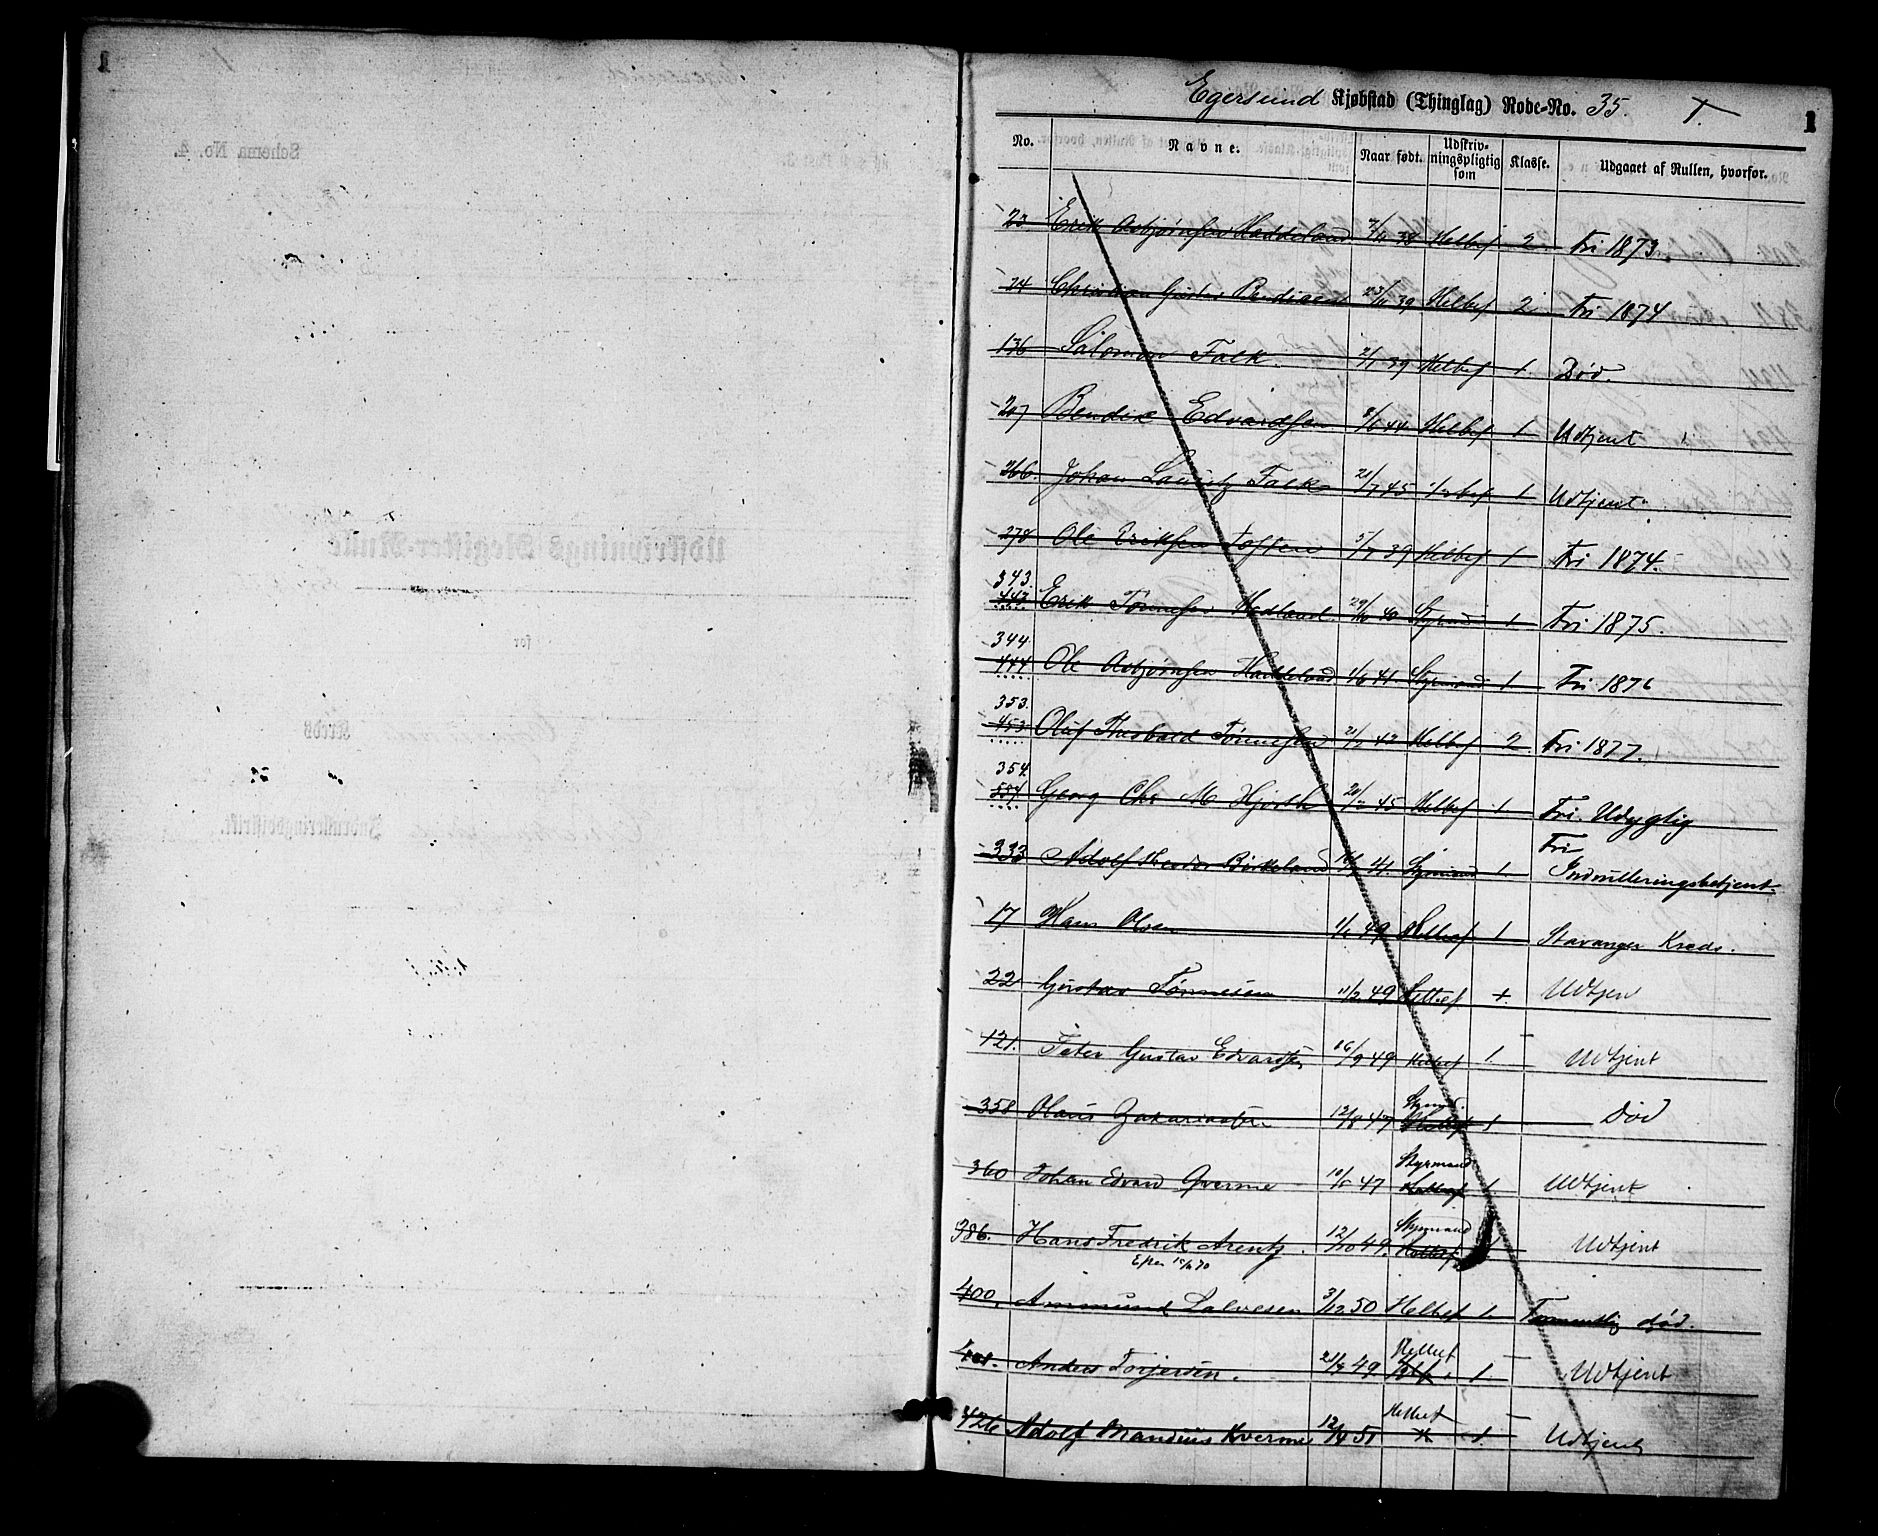 Egersund Kjøbstad (Thinglag) Rode-No. 35. 1
No. Navne. Naar født. Udskrivningspligtig som Klasse. Udgaaet af Rullen, hvorfor.
23 Erik Asbjørnsen Haddeland 38 Helbef 2 Fri 1873.
24 Christian Gustav 23/11 39 Helbef 2 Fri 1874
136 Salomon Falk 2/1 39 Helbef 1 Død.
207 Bendix Edvardsen 8/6 44 Helbef 1 Udtjent
366. Johan Lauritz Falk 21/7 45 1/2 bef 1 Udtjent
278 Ole Eriksen Toften 5/7 39 Helbef 1 Fri 1874.
343.
443 Erik Tønnesen Hadland 40 Styrmand 1 Fri 1875.
344
444 Ole Asbjørnsen Haddeland 41. Styrmand 1 Fri 1876
353.
453 Oluf Tønnesen 21/2 42 Helbef 2 Fri 1877.
354.
554 Georg Chr M Hjorth 20/12 45 Helbef 1 Fri. Udygtig
333 Adolf Theodor Birkeland 41. Styrmand 1. Fri Indrulleringsbetjent.
17 Hans Olsen 49 Helbef 1 Stavanger Kreds.
22 Gustav Tønnesen 11/2 49 Helbef 1. Udtjen
121. Peter Gustav Edvardsen 16/9 49 Helbef 1. Udtjent
358 Olaus Zakariasen 12/8 47 Styrmd. Helbef 1 Død
360 Johan Edvard Qverme 10/6 47 Styrmand Helbef 1 Udtjent
386. Hans Fredrik Arentz. 12/10 49. Styrmand Helbef Udtjent
400. Ammund Salvesen 3/12 50 Helbef 1. Formentlig død.
401. Anders Torjersen. 21/9 49. Helbef 1 Udtjent
426 Adolf Mandius Kverme 12/4 51 Helbef 1. Udtjent